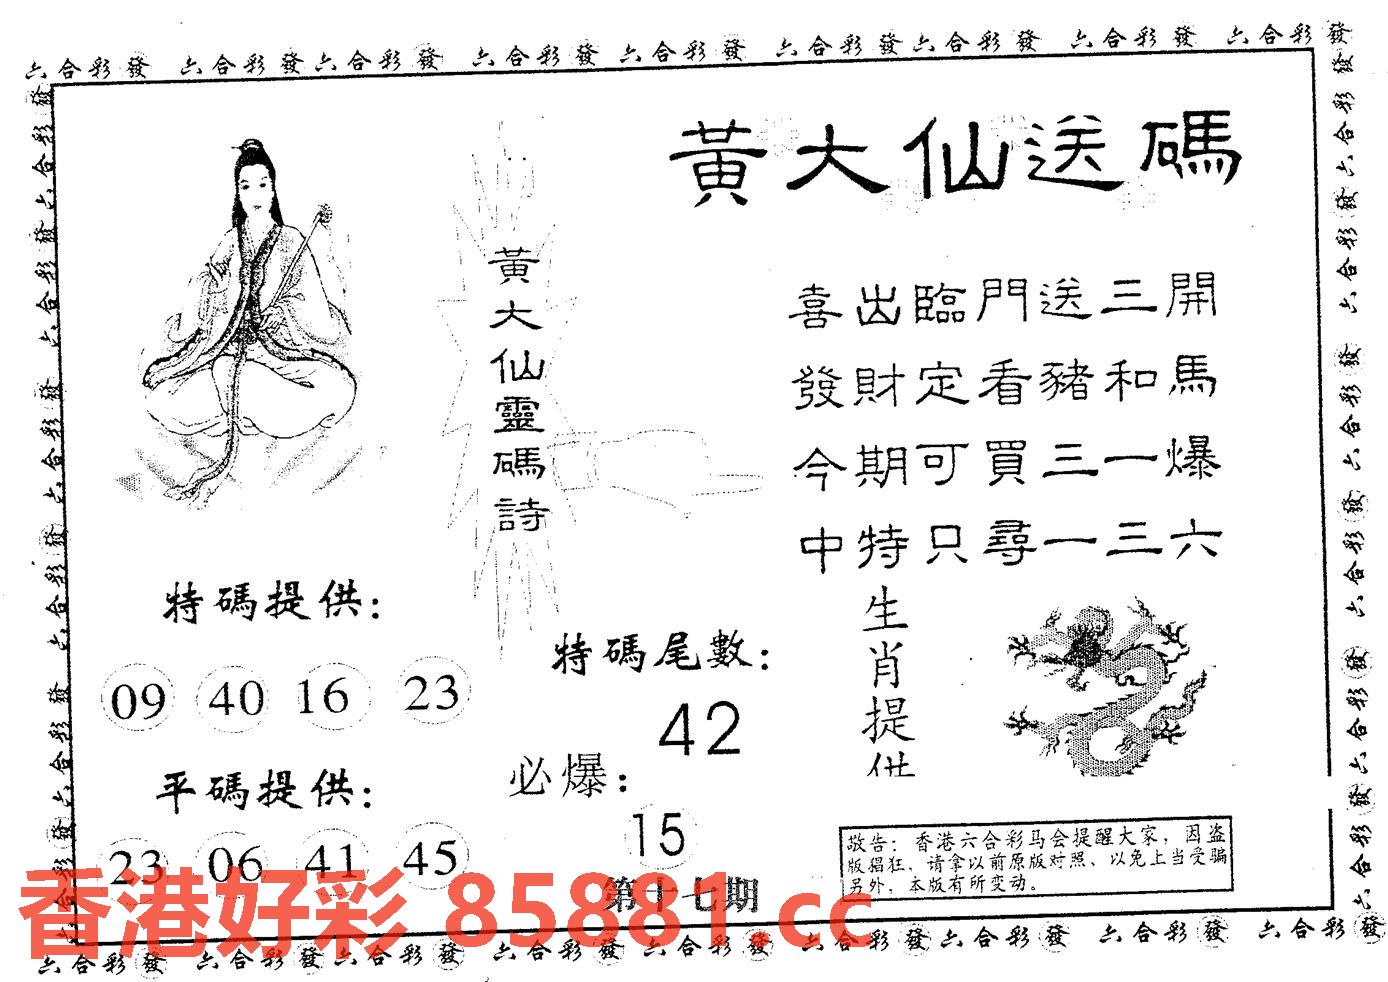 六合彩發 六合彩發六合彩發 六合彩發 六合彩發 六合彩發六合彩發 六合彩發 六合彩發
黃大仙送碼
黃大仙靈碼詩
喜出臨門送三開
發財定看豬和馬
今期可買三一爆
中特只尋一三六
特碼提供：
09 40 16 23
平碼提供：
23 06 41 45
特碼尾數：
42
必爆：
15
第十七期
生肖提供
敬告：香港六合彩马会提醒大家，因盗
版猖狂，请拿以前原版对照、以免上当受骗
另外，本版有所变动。
香港好彩 85881 cc
六合彩發 六合彩發六合彩發 六合彩發 六合彩發 六合彩發六合彩發 六合彩發 六合彩發